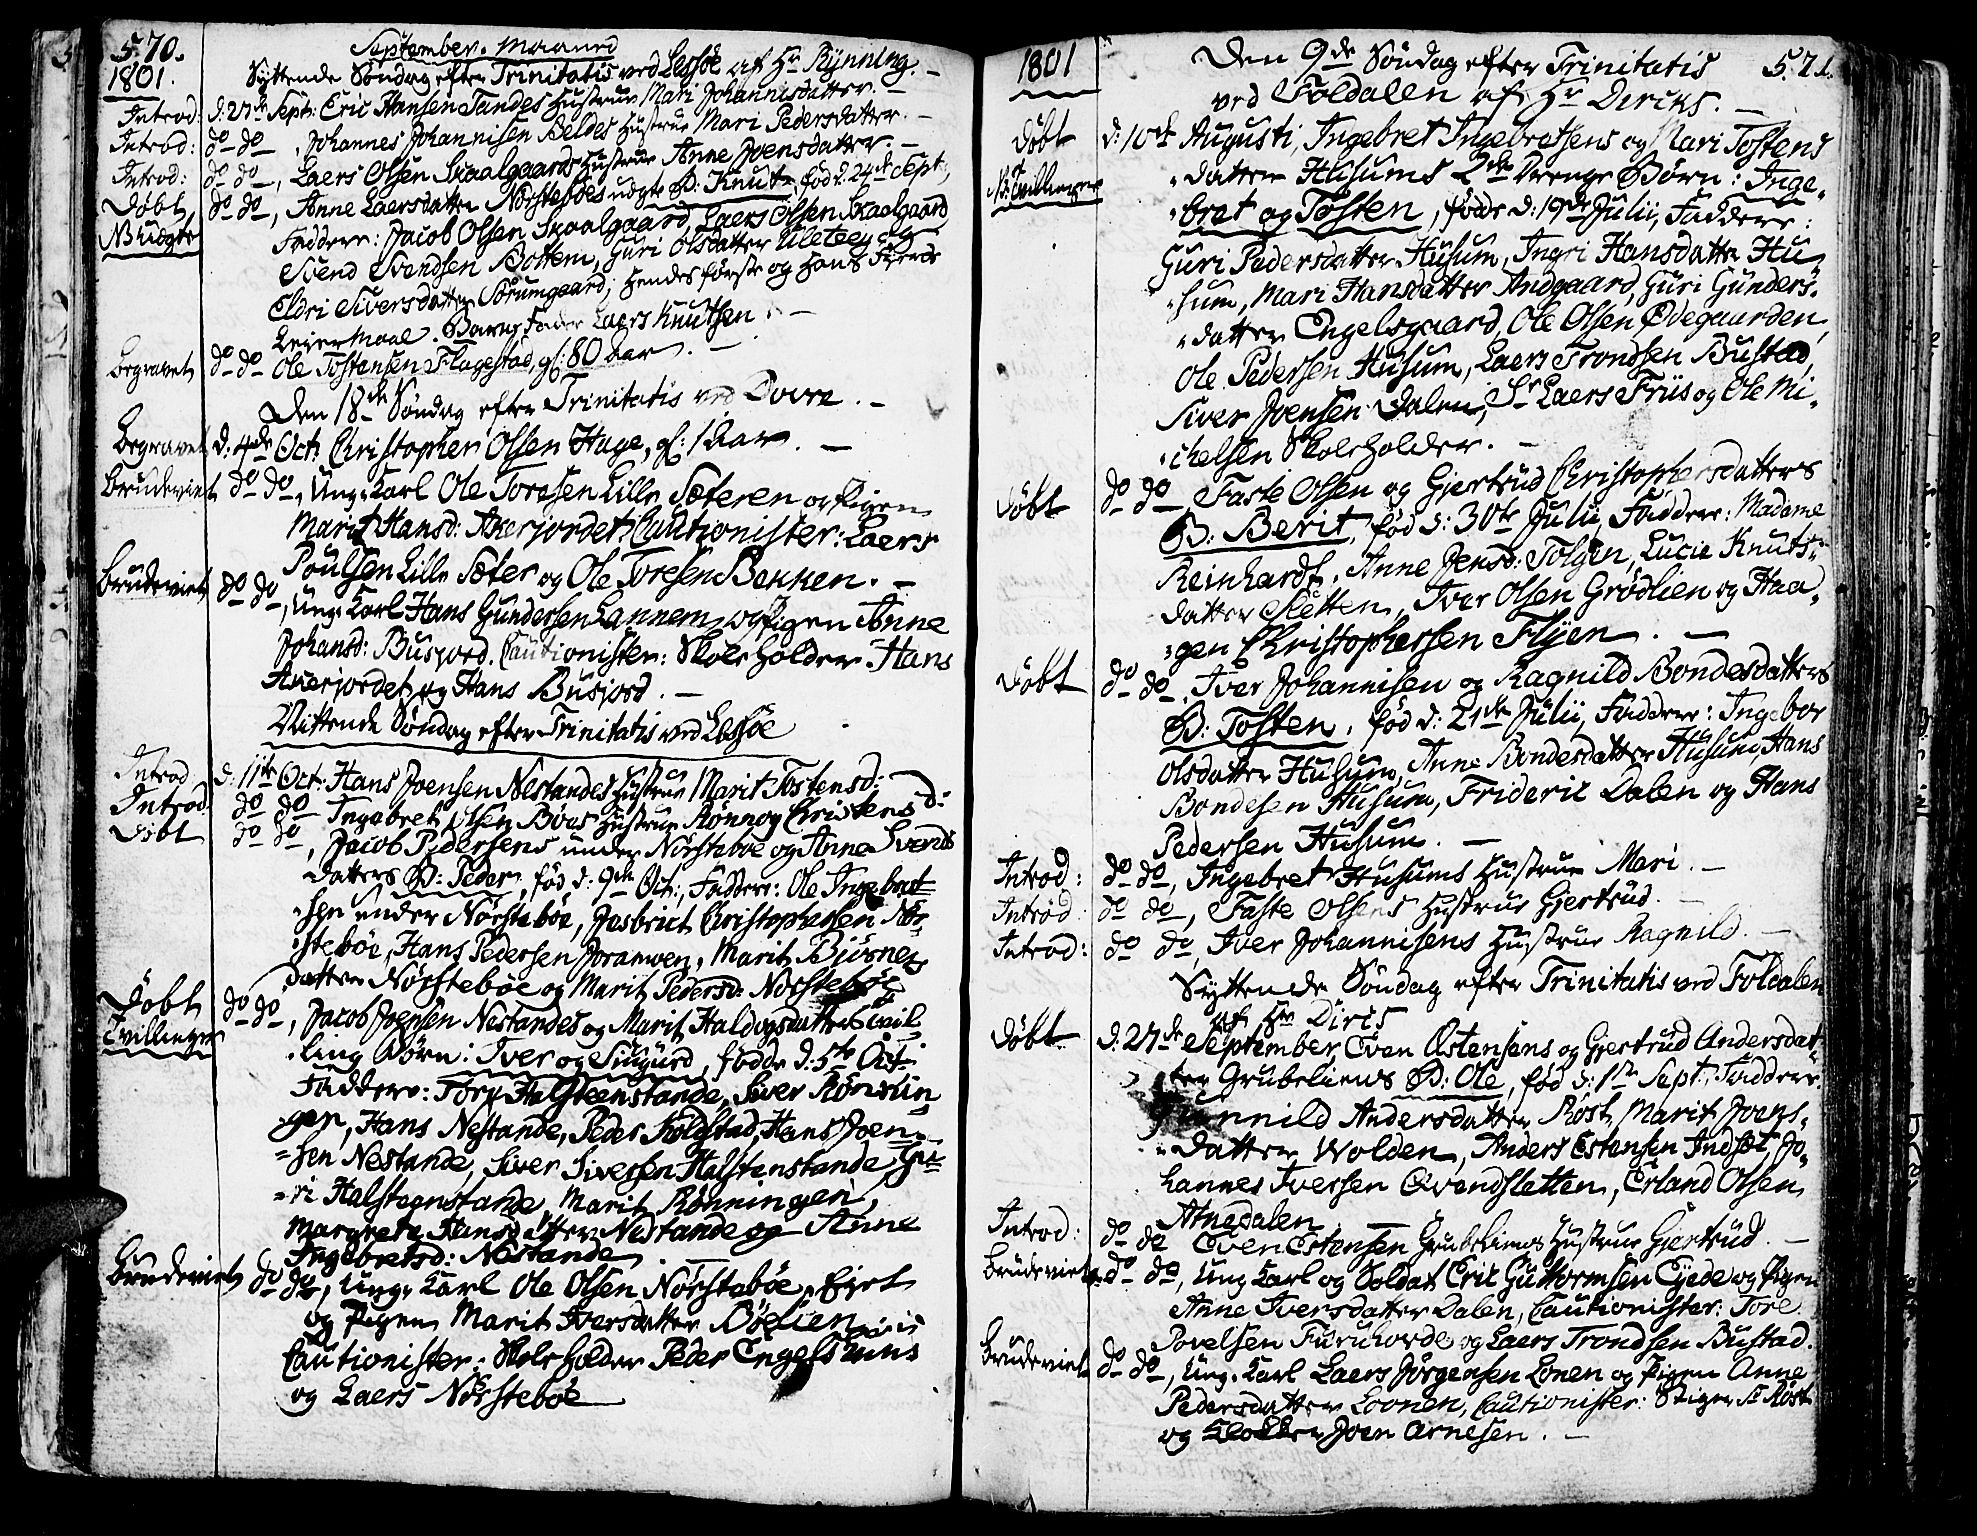 570.
1801.
September. Maaned
Syttende Søndag efter Trinitatis ved Lessøe af Hr Rynning. –
Introd: d: 27de Sept: Eric Hansen Tandes Hustrue Mari Johannisdatter. –
Introd: do do, Johannes Johannisen Beldes Hustrue Mari Pedersdatter. –
Introd: do do, Laers Olsen Skaalgaards Hustrue Anne Joensdatter. –
Døbt, do do, Anne Laersdatter Nørstebøes uægte B: Knut, fød d: 24de Sept:,
NB uægte Faddere: Jacob Olsen Skaalgaard, Laers Olsen Skaalgaard,
Svend Svendsen Bottem, Guri Olsdatter og
Eldri Siversdatter Sørumgaard; Hendes første og Hans
Leiermaal. Barne Fader Laers Knutsen. –
Begravet do do Ole Tostensen Flagestad, gl: 80 Aar. –
Den 18de Søndag efter Trinitatis ved Dovre. –
Begravet d: 4de Oct: Christopher Olsen Hage, gl: 1 Aar. –
Brudeviet do do, Ung: Karl Ole Toresen Lille Sæteren og Pigen
Marit Hansd: Akerjordet, Cautionister: Laers
Poulsen Lille Sæter og Ole Toresen Bekken. –
Brudeviet do do, Ung: Karl Hans Gundersen Lannem og Pigen Anne
Johansd: Busjord. Cautionister: Skoleholder Hans
Akerjordet og Hans Busjord. –
Nittende Søndag efter Trinitatis ved Lessøe
Introd d: 11te Oct: Hans Joensen Nestandes Hustrue Marit Tostensd: –
Introd: do do Ingebret Olsen Bøes Hustrue Rønnog Christensd:
Døbt do do, Jacob Pedersens under Nørstebøe og Anne Svends
datters B: Peder, fød d: 9de Oct:, Faddere: Ole Ingebret
sen under Nørstebøe, Jesbrict Christophersen Nør-
stebøe, Hans Pedersen Joramoen, Marit Biørners
datter Nørstebøe og Marit Pedersd: Nørstebøe
Døbt do do, Jacob Joensen Nestandes og Marit Haldogsdatters Tvil-
Tvillinger ling Børn: Iver og Siugurd, fødde d: 5te Oct:
Faddere: Tore Halsteenstande, Siver Rønnin
gen, Hans Nestande, Peder Skolstad, Hans Joen-
sen Nestande, Siver Siversen Halstenstande, Gu-
ri Halsteenstande, Marit Rønningen,
Margrete Hansdatter Nestande og Anne
Ingebretsd: Nestande –
Brudeviet do do, Ung: Karl Ole Olsen Nørstebøe
og Pigen Marit Iversdatter Bøelien
Cautionister: Skoleholder Peder
og Laers Nørstebøe
1801
571.
Den 9de Søndag efter Trinitatis
ved Foldalen af Hr Dircks. –
Døbt d: 10de Augusti, Ingebret Ingebretsens og Mari Tostens
NB Tvillinger datter Husums 2de Drenge Børn: Inge-
bret og Tosten, fødde d: 19de Julii, Faddere:
Guri Pedersdatter Husum, Ingri Hansdatter Hu
sum, Mari Hansdatter Andgaard, Guri Gunders-
datter Engelsgaard, Ole Olsen Ødegaarden,
Ole Pedersen Husum, Laers Trondsen Bustad,
Siver Joensen Dalen, Sr Laers Friis og Ole Mi-
chelsen Skoleholder. –
Døbt do do, Faste Olsen og Gjertrud Christophersdatters
B: Berit, fød d: 30te Julii, Faddere: Madame
Reinhardt, Anne Jensd: Tolgen, Lucie Knuts-
datter Sletten, Iver Olsen Grødlien og Haa-
gen Christophersen Flyen. –
Døbt do do, Iver Johannisen og Ragnild Bondesdatters
B: Tosten, fød d: 21de Julii, Faddere: Ingebor
Olsdatter Husum, Anne Bondesdatter Husum, Hans
Bondesen Husum, Frideric Dalen og Hans
Pedersen Husum. –
Introd: do do, Ingebret Husums Hustrue Mari. –
Introd: do do, Faste Olsens Hustrue Gjertrud. –
Introd: do do, Iver Johannisens Hustrue Ragnild. –
Syttende Søndag efter Trinitatis ved Foldalen
af Hr Dircs
Døbt d: 27de September, Even Østensens og Gjertrud Andersdat-
ter Grubeliens B: Ole, fød d: 1ste Sept:, Faddere
Gunnild Andersdatter Røst, Marit Joens-
datter Wolden, Anders Estensen Indset, Jo-
hannes Iversen Qvendsletten, Erland Olsen
Atnedalen –
Introd: do do Even Estensen Grubeliens Hustrue Gjertrud. –
Brudeviet do do, Ung Karl og Soldat Eric Guttormsen Eyede og Pigen
Anne Iversdatter Dalen, Cautionister: Tore
Povelsen Furuhovde og Laers Trondsen Bustad.
Brudeviet do do, Ung: Karl Laers Jørgensen Lonen og Pigen Anne
Pedersdatter Loonen, Cautionister: Stiger Sr Røst
og Klokker Joen Arnesen. –